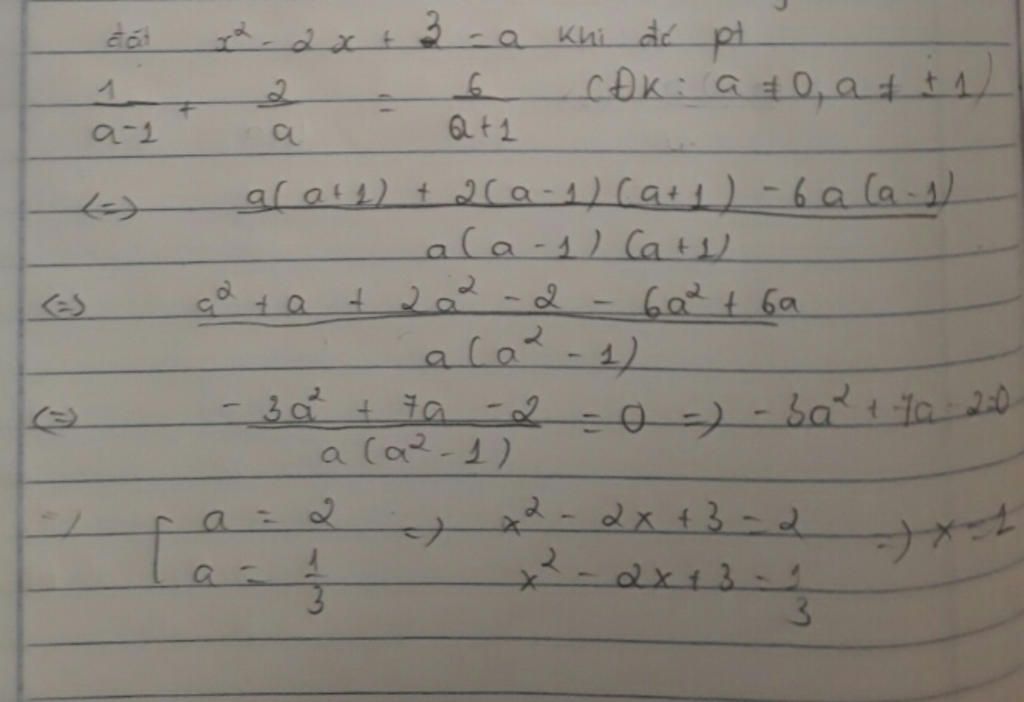 đặt x² - 2x + 3 = a khi đó pt
1/(a-1) + 2/a = 6/(a+1) (ĐK: a ≠ 0, a ≠ ± 1)
<=> (a(a+1) + 2(a-1)(a+1) - 6a(a-1))/(a(a-1)(a+1))
<=> (a² + a + 2a² - 2 - 6a² + 6a)/(a(a² - 1))
<=> (-3a² + 7a - 2)/(a(a² - 1)) = 0 => -3a² + 7a - 2 = 0
=> [ a = 2 => x² - 2x + 3 = 2 => x = 1
a = 1/3 x² - 2x + 3 = 1/3